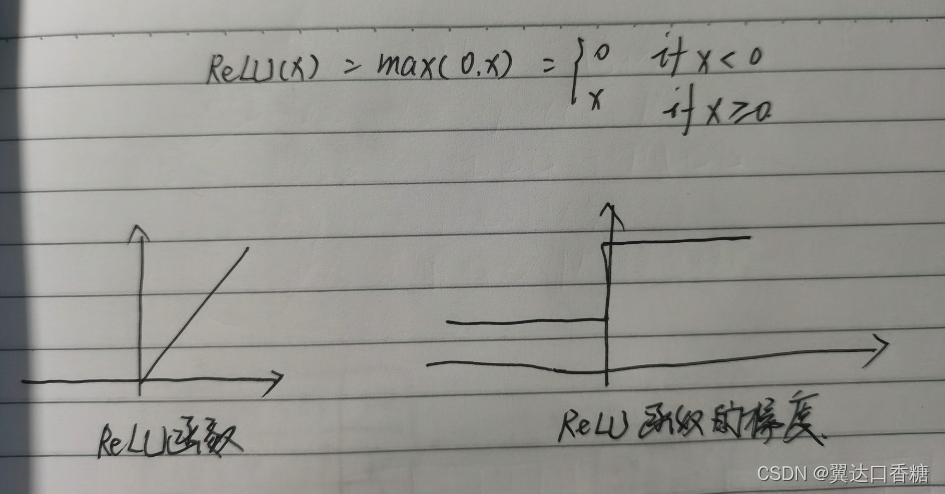 ReLU(x) = max(0.x) = { 0 if x < 0
x if x ≥ 0
ReLU函数
ReLU函数的梯度
CSDN @翼达口香糖